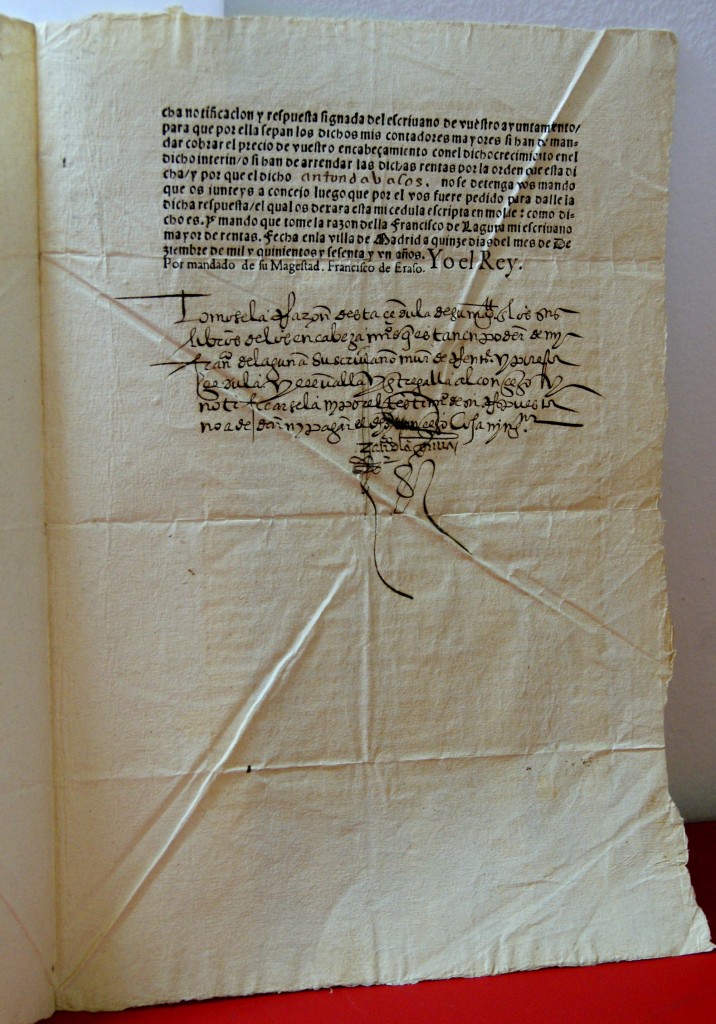 cha notificacion y respuesta signada del escriuano de vuestro ayuntamento/
para que por ella sepan los dichos mis contadores mayores si han de man-
dar cobrar el precio de vuestro encabeçamiento conel dicho crecimiēto enel
dicho interin/o si han de arrendar las dichas rentas por la orden que esta di
cha/y por que el dicho anton davalos. no se detenga vos mando
que os iunteys a concejo luego que por el vos fuere pedido para dalle la
dicha respuesta/el qual os dexara esta mi cedula escripta en molde: como di-
cho es. Y mando que tome la razon della Francisco de Laguna mi escriuano
mayor de rentas. Fecha enla villa de Madrid a quinze dias del mes de De
ziembre de mil y quinientos y sesenta y vn años. Yo el Rey.
Por mandado de su Magestad. Francisco de Eraso.
Tomose la Razon desta cedula de su mag. los sus
libros de los encabezami°s q estan en poder de my
fran de laguna su scriuano mor de Rentas y por esta
cedula y al concejo
notificarsela y por el testim° de Respuesta
no a de